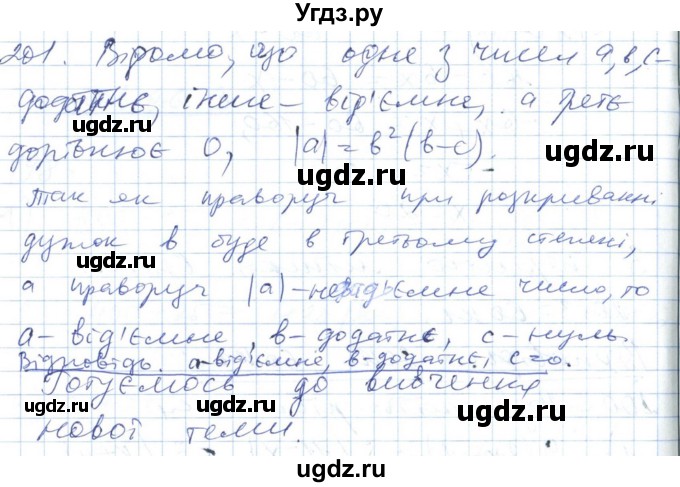 Угдз.ру
201. Відомо, що одне з чисел a, b, c-
додатнє, інше - від'ємне, а третє
ugdz.ru ugdz.ru
дорівнює 0, |a| = b²(b-c).
ugdz.ru
Так як праворуч при розкриванні
дужок b буде в третьому степені,
ugdz.ru ugdz.ru
а праворуч |a| - невід'ємне число, то
a - від'ємне, b - додатнє, c - нуль.
Відповідь. a - від'ємне, b - додатнє, c=0.
ugdz.ru ugdz.ru
Готуємось до вивчення
нової теми.
ugdz.ru